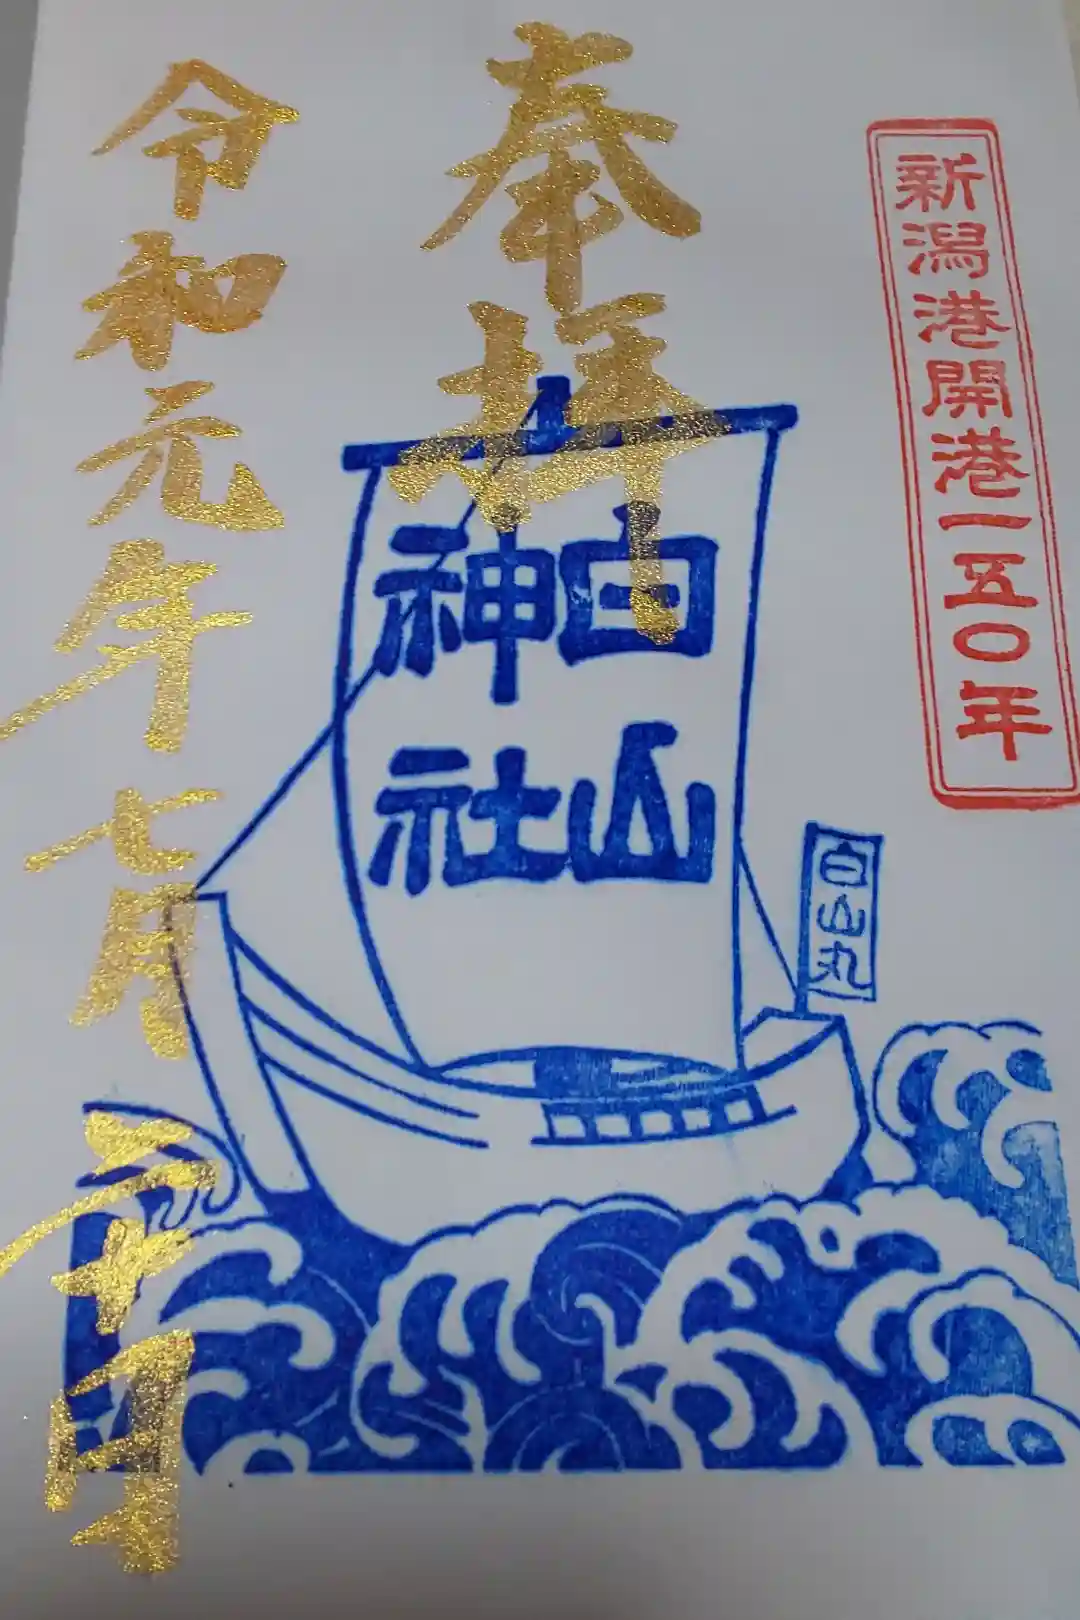 新潟港開港一五〇年
奉拝
白山
神社
白山丸
令和元年七月二十日